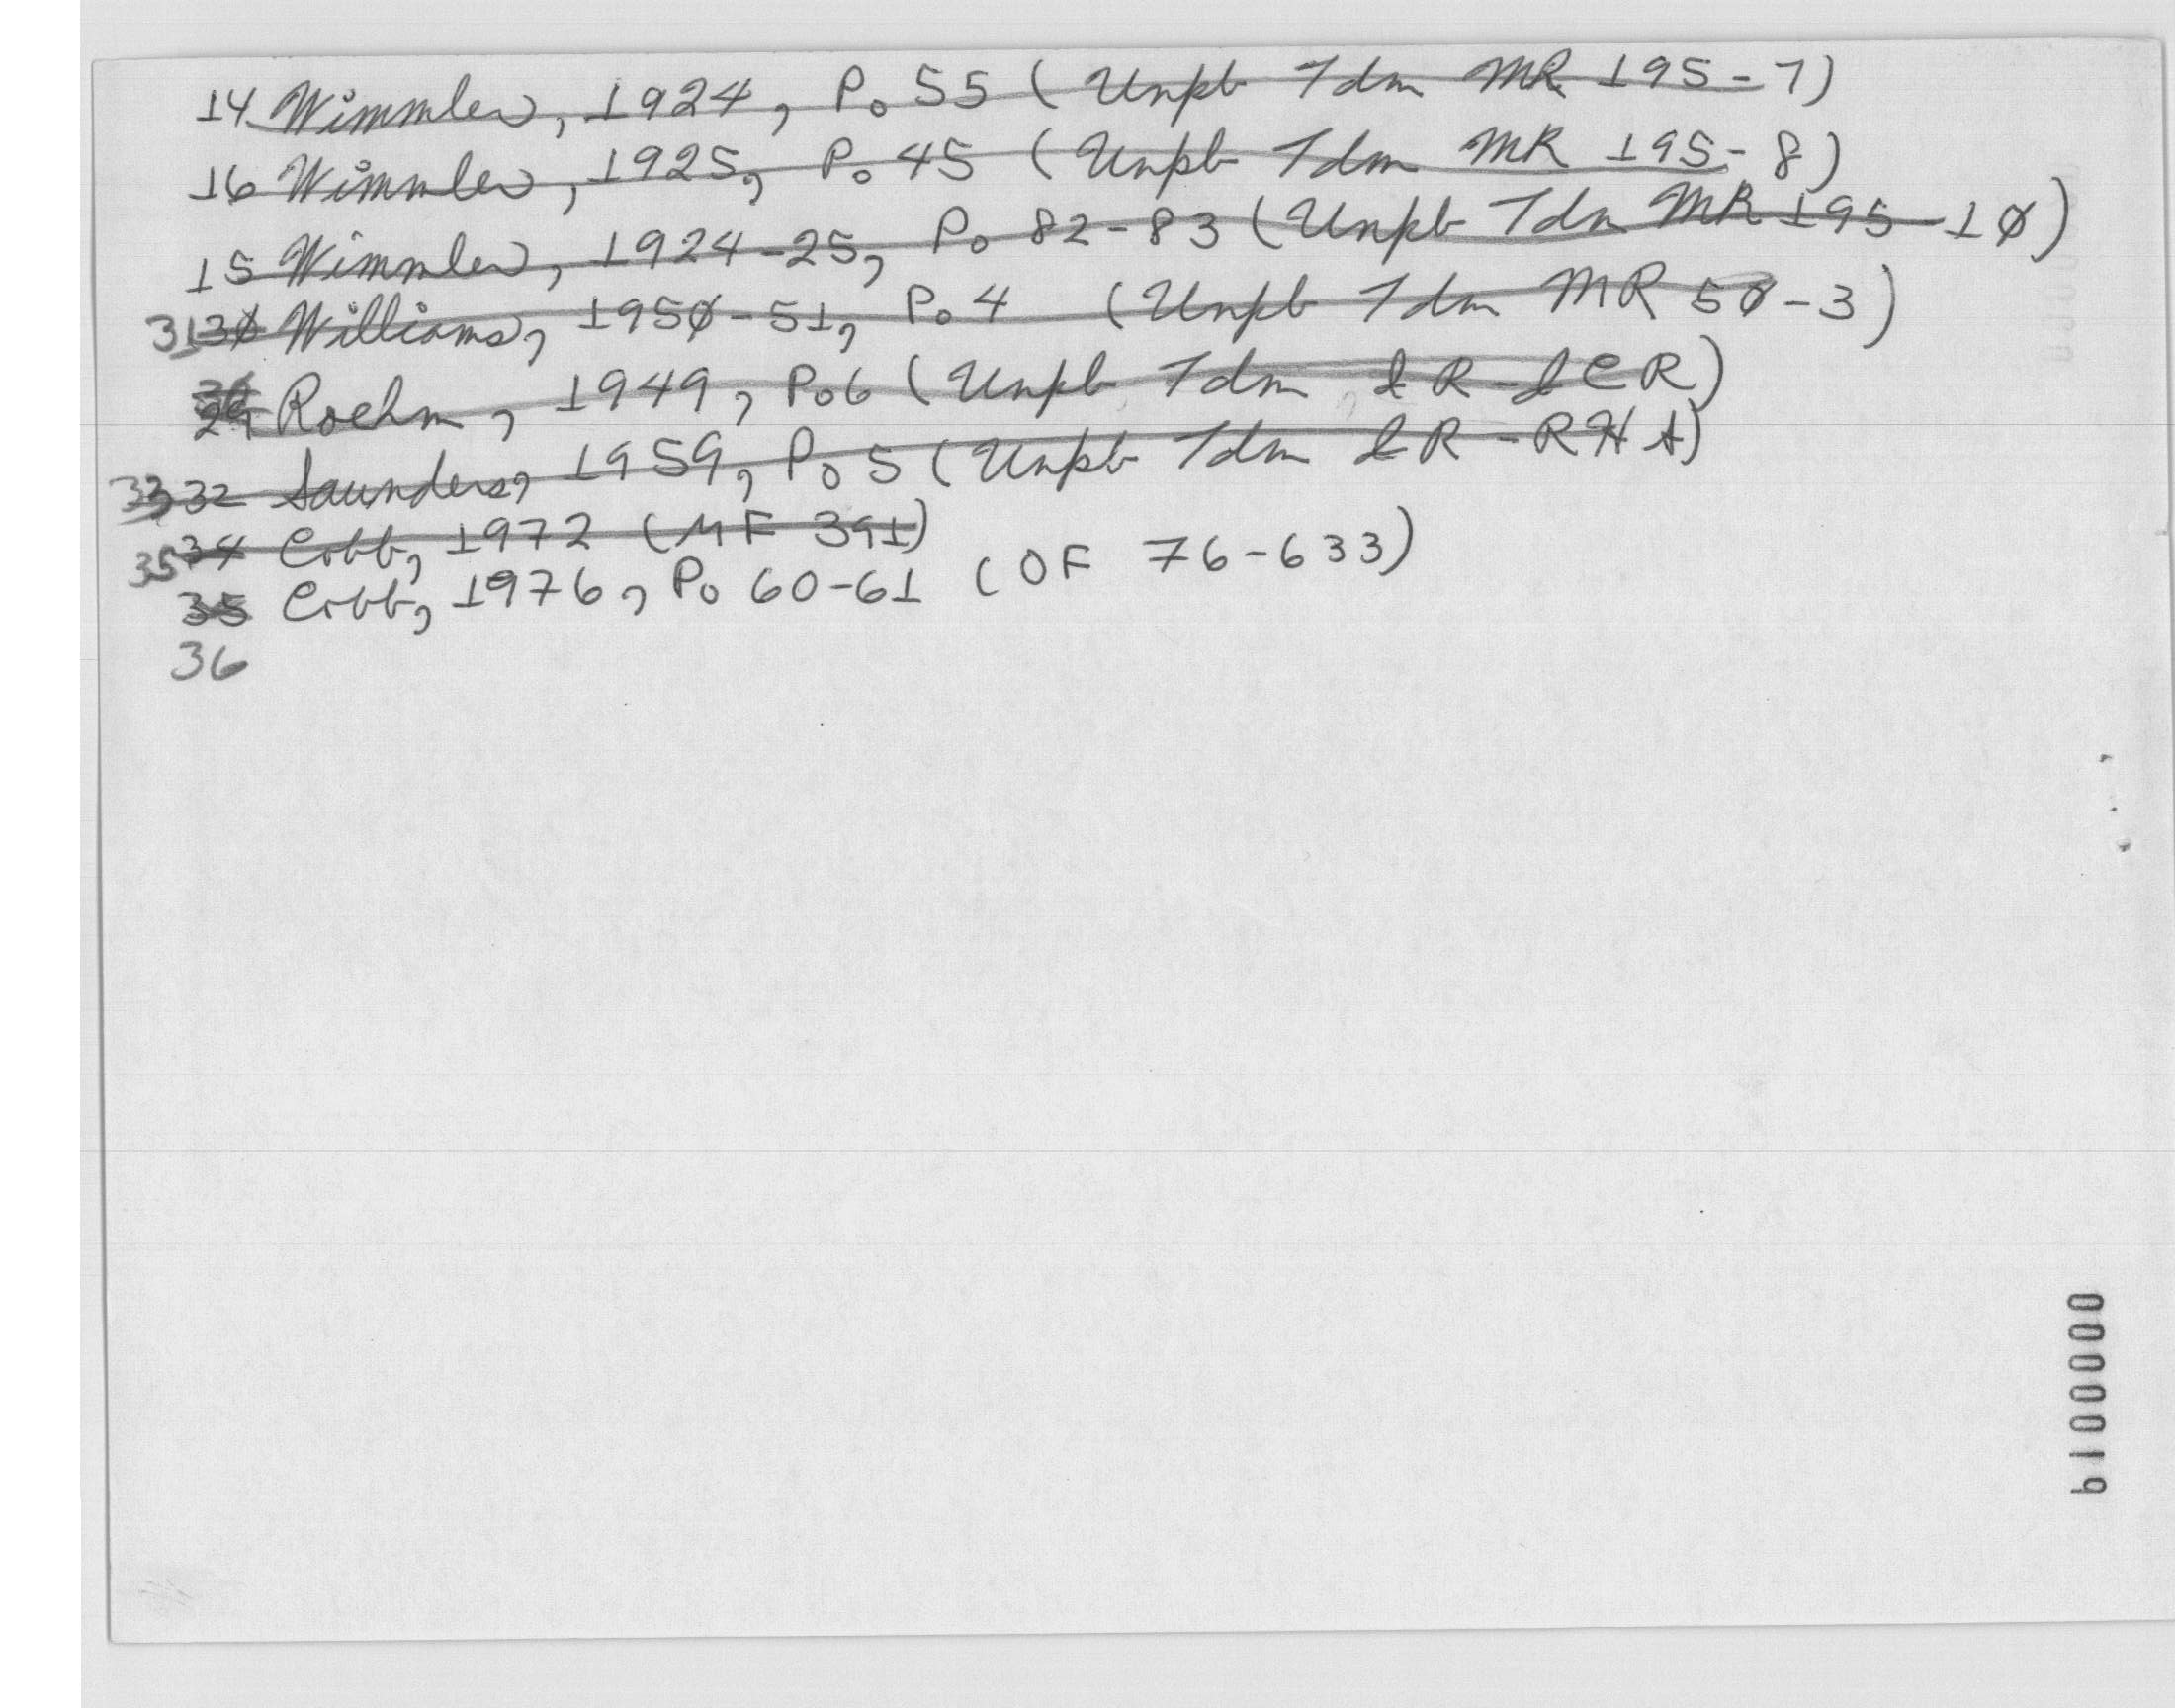 14 Wimmler, 1924, P. 55 (Unpb Tdm MR 195-7)
16 Wimmler, 1925, P. 45 (Unpb Tdm MR 195-8)
15 Wimmler, 1924-25, P. 82-83 (Unpb Tdm MR 195-10)
31 30 Williams, 1950-51, P. 4 (Unpb Tdm MR 50-3)
29 Roehm, 1949, P. 6 (Unpb Tdm IR-LCR)
33 32 Saunders, 1959, P. 5 (Unpb Tdm IR-RHS)
35 34 Cobb, 1972 (MF 391)
35 Cobb, 1976, P. 60-61 (OF 76-633)
36
0000019